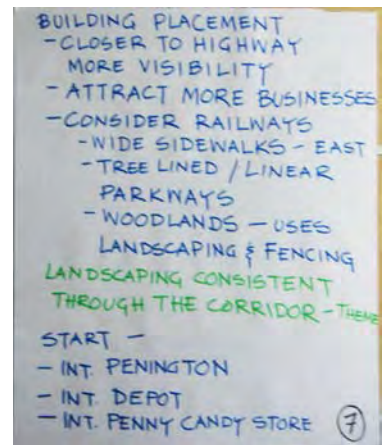 BUILDING PLACEMENT
- CLOSER TO HIGHWAY
MORE VISIBILITY
- ATTRACT MORE BUSINESSES
- CONSIDER RAILWAYS
- WIDE SIDEWALKS - EAST
- TREE LINED / LINEAR
PARKWAYS
- WOODLANDS - USES
LANDSCAPING & FENCING
LANDSCAPING CONSISTENT
THROUGH THE CORRIDOR - THEME
START -
- INT. PENINGTON
- INT. DEPOT
- INT. PENNY CANDY STORE 7